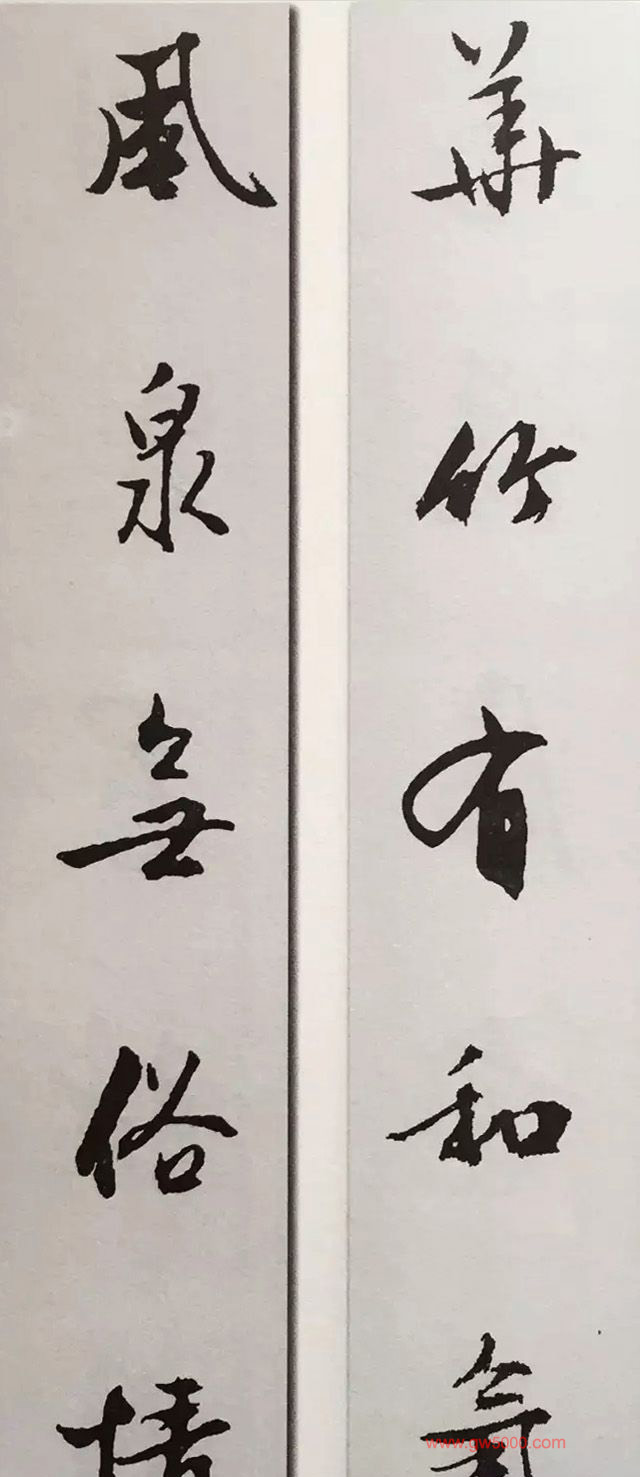 華竹有和氣
風泉無俗情
www.gw5000.com